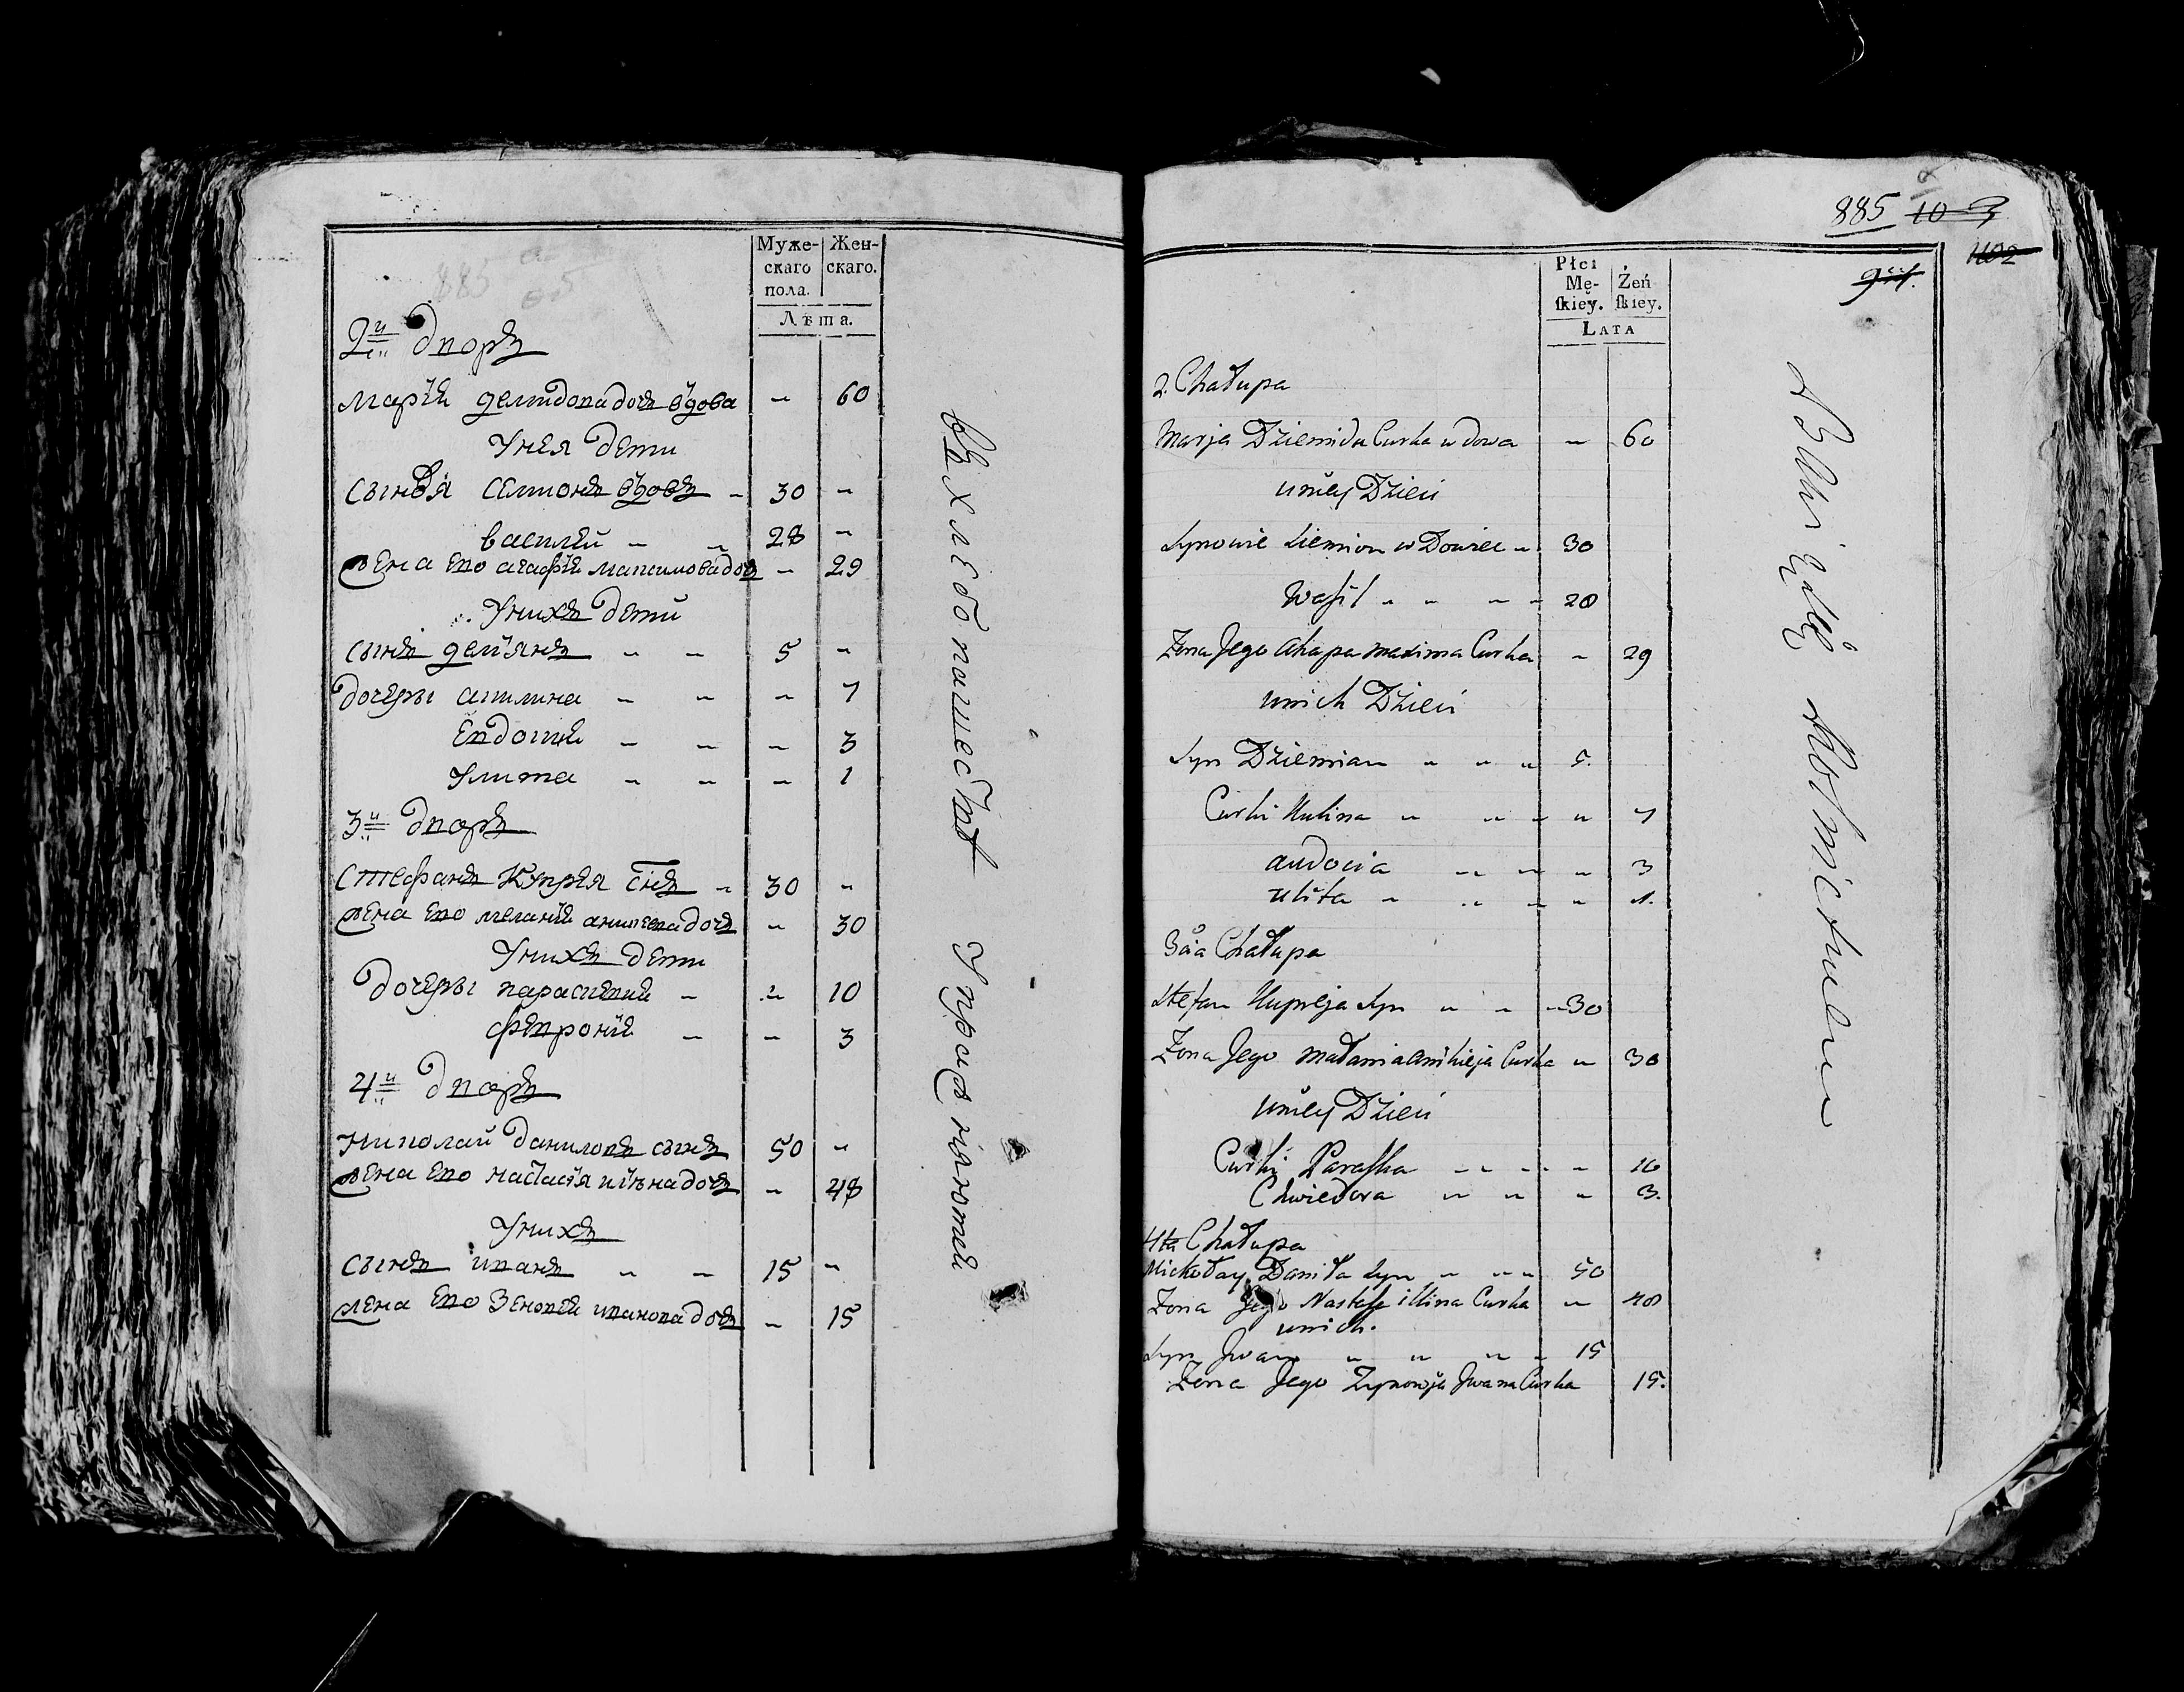 Муже-
скаго
пола.
Жен-
скаго.
Лѣта.
2й дворъ
Марїя демидова дочь вдова - 60
У нея дети
Сыновя Семионъ вдовъ - 30 -
василей - - 28 -
жена ево агафїя максимова дочь - 29
У нихъ дети
сынъ демянъ - - 5 -
дочери акилина - - - 7
Евдокия - - - 3
Улита - - - 1
3й дворъ
Стефанъ Купрея снъ - 30 -
жена ево меланїя аникеева дочь - 30
У нихъ дети
Дочери парасковия - - 10
февронїя - - 3
4й дворъ
Николай данилово сынъ 50 -
жена ево настасїя дочь - 48
У нихъ
сынъ иванъ - - 15 -
жена ево Зеновия иванова дочь - 15
въ хлебопашестве Упражняютей
885 10 3
1102
Płci
Mę-
ſkiey.
Żeń
ſkiey.
LATA
2. Chałupa
Marja Dziemida Curka wdowa - 60
u niey Dzieci
Synowie Siemion w Dowiec - 30
Waſil - - - - 28
Zona Jego Ahapa Maxima Curka - 29
u nich Dzieci
Syn Dziemian - - - 5.
Curki Kulina - - - - 7
audocia - - - 3
ulita - - - - 1.
3cia Chałupa
Stefan Kupreja Syn - - - 30
Zona Jego Małania Anikieja Curka - 30
u niey Dzieci
Curki Paraſka - - - - 10
Chwiedora - - - 3.
4ta Chałupa
Mickołay Daniła Syn - - - 50
Zona Jego Nastaſe illina Curka - 48
u nich.
Syn Jwan - - - - 15
Zona Jego Zynowja Jwana Curka 15.